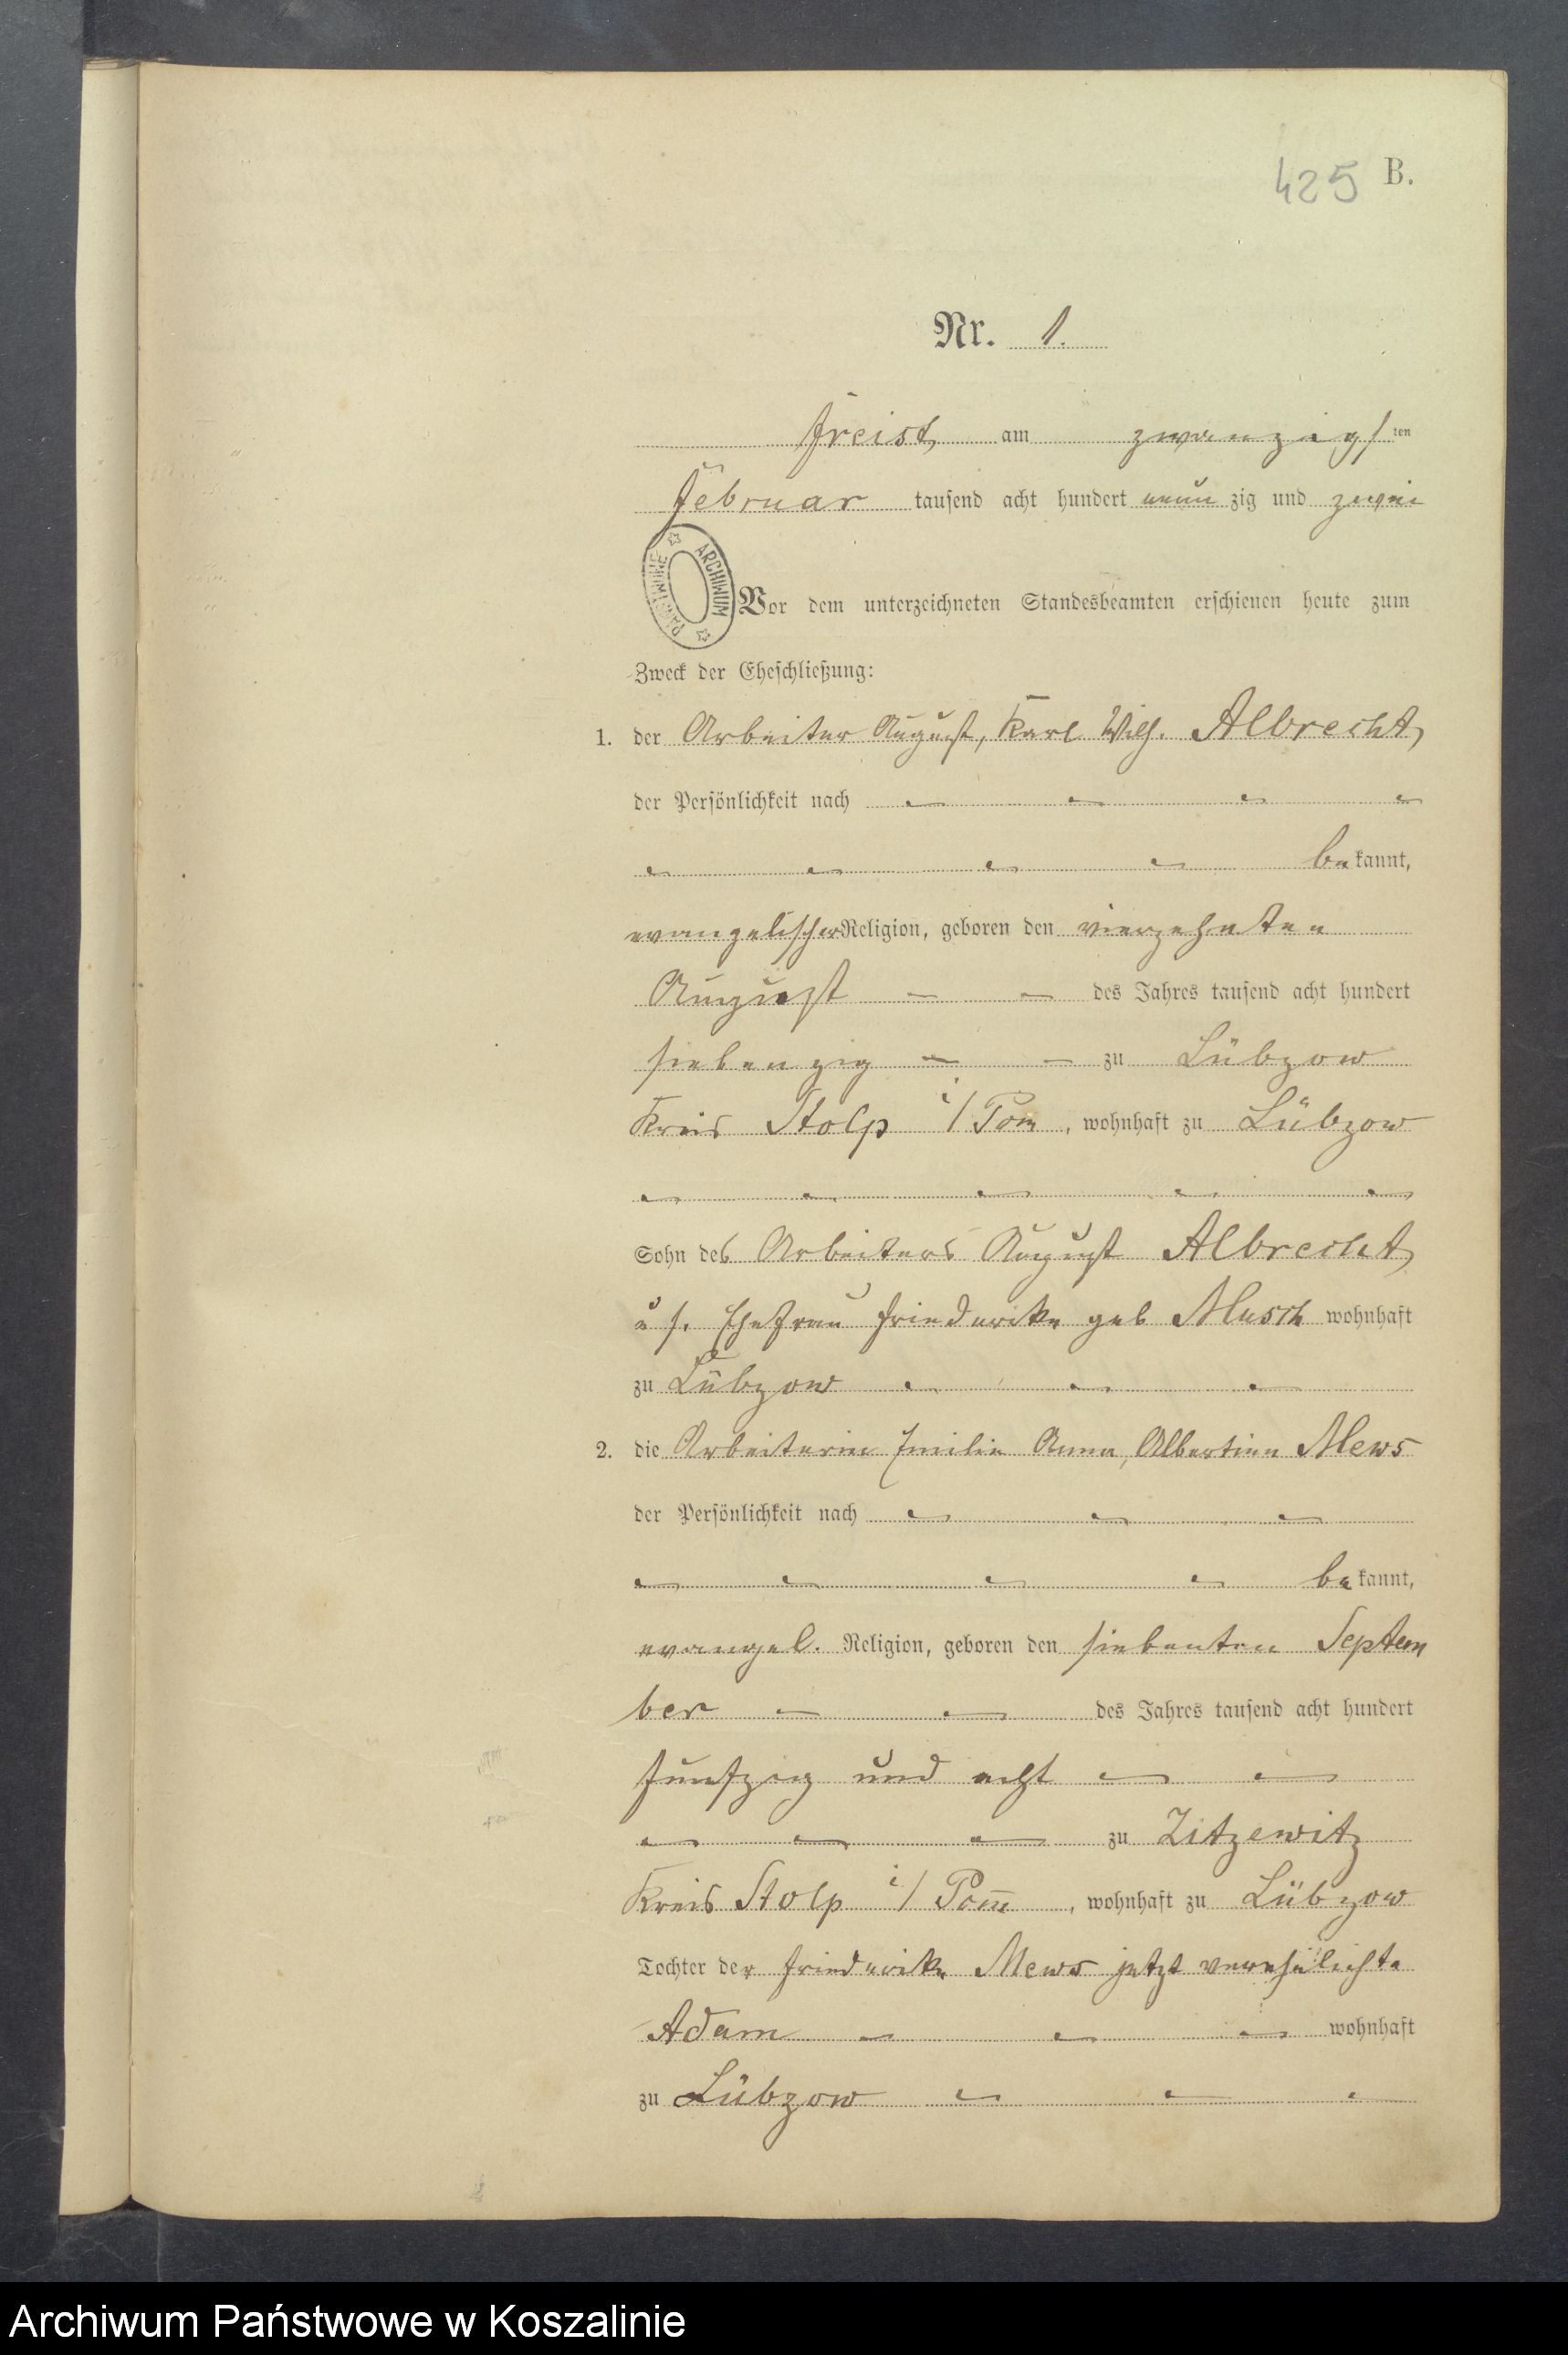 425 B.
Nr. 1.
Freist am zwanzigsten
Februar tausend acht hundert neunzig und zwei
PAŃSTWOWE ☆ ARCHIWUM ☆
Vor dem unterzeichneten Standesbeamten erschienen heute zum
Zweck der Eheschließung:
1. der Arbeiter August, Karl Wilh. Albrecht,
der Persönlichkeit nach
bekannt,
evangelischer Religion, geboren den vierzehnten
August des Jahres tausend acht hundert
siebenzig zu Lübzow
Kreis Stolp i/Pom, wohnhaft zu Lübzow
Sohn des Arbeiters August Albrecht
u s. Ehefrau Friederike geb Musch wohnhaft
zu Lübzow
2. die Arbeiterin Emilie Anna, Albertine Mews
der Persönlichkeit nach
bekannt,
evangel. Religion, geboren den siebenten Septem
ber des Jahres tausend acht hundert
fünfzig und acht
zu Zitzewitz
Kreis Stolp i/Pom̅, wohnhaft zu Lübzow
Tochter der Friederike Mews jetzt verehelichte
Adam wohnhaft
zu Lübzow
Archiwum Państwowe w Koszalinie